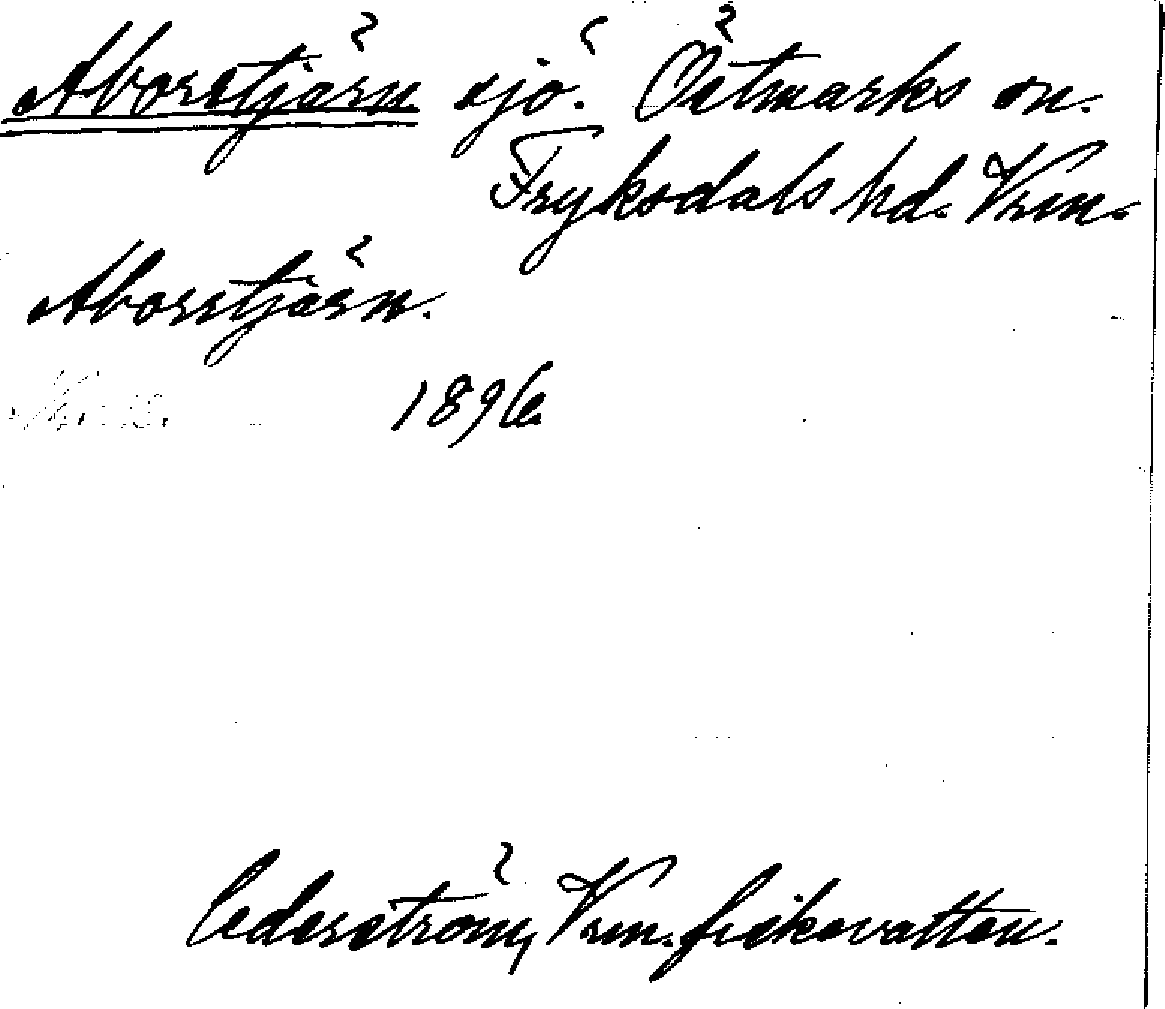 Aborstjärn sjö. Östmarks sn.
Fryksdals hd. Vrm.
Aborrtjärn.
1896.
Cederström, Vrm. fiskevatten.